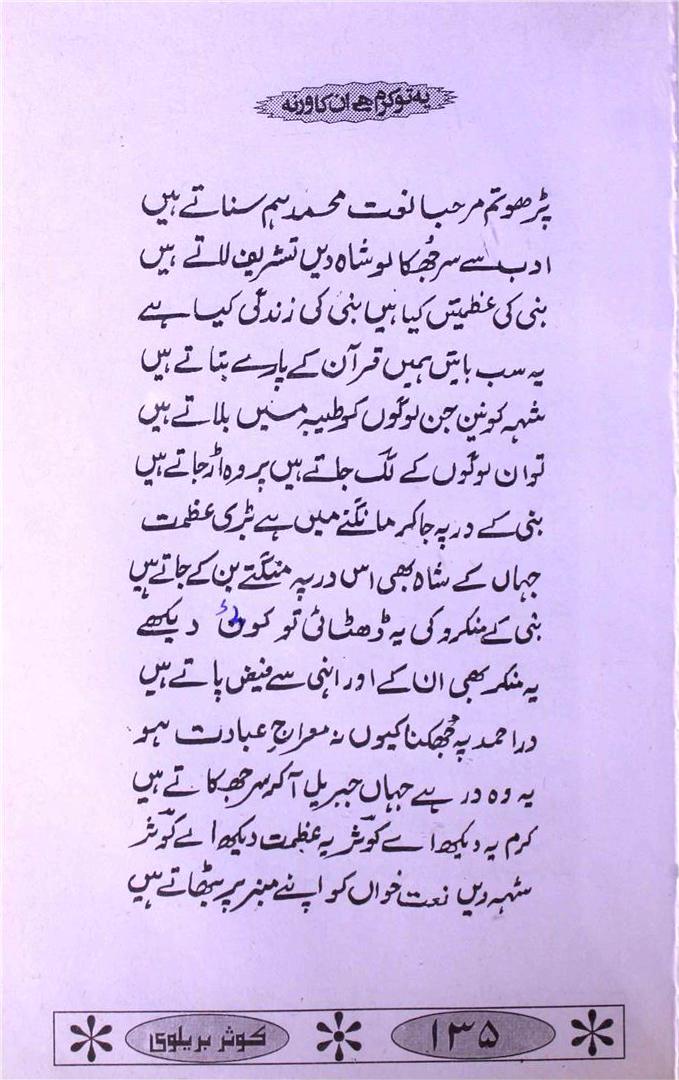 یہ تو کرم ہے ان کا ورنہ
پڑھو تم مرحبا نعت محمد ہم سناتے ہیں
ادب سے سر جُھکا لو شاہ دیں تشریف لاتے ہیں
نبی کی عظمیتں کیا ہیں نبی کی زندگی کیا ہے
یہ سب باتیں ہمیں قرآن کے پارے بتاتے ہیں
شہہ کونین جن لوگوں کو طیبہ میں بلاتے ہیں
تو ان لوگوں کے لگ جاتے ہیں پر وہ اڑ جاتے ہیں
نبی کے در پہ جا کر مانگنے میں ہے بڑی عظمت
جہاں کے شاہ بھی اس در پہ منگتے بن کے جاتے ہیں
نبی کے منکرو کی یہ ڈھٹائی تو کوئی دیکھے
یہ منکر بھی ان کے اور انہی سے فیض پاتے ہیں
در احمد پہ جُھکنا کیوں نہ معراجِ عبادت ہو
یہ وہ در ہے جہاں جبریل آ کر سر جھکاتے ہیں
کرم یہ دیکھ اے کوثر یہ عظمت دیکھ اے کوثر
شہہ دیں نعت خواں کو اپنے منبر پر بٹھاتے ہیں
۱۳۵
کوثر بریلوی